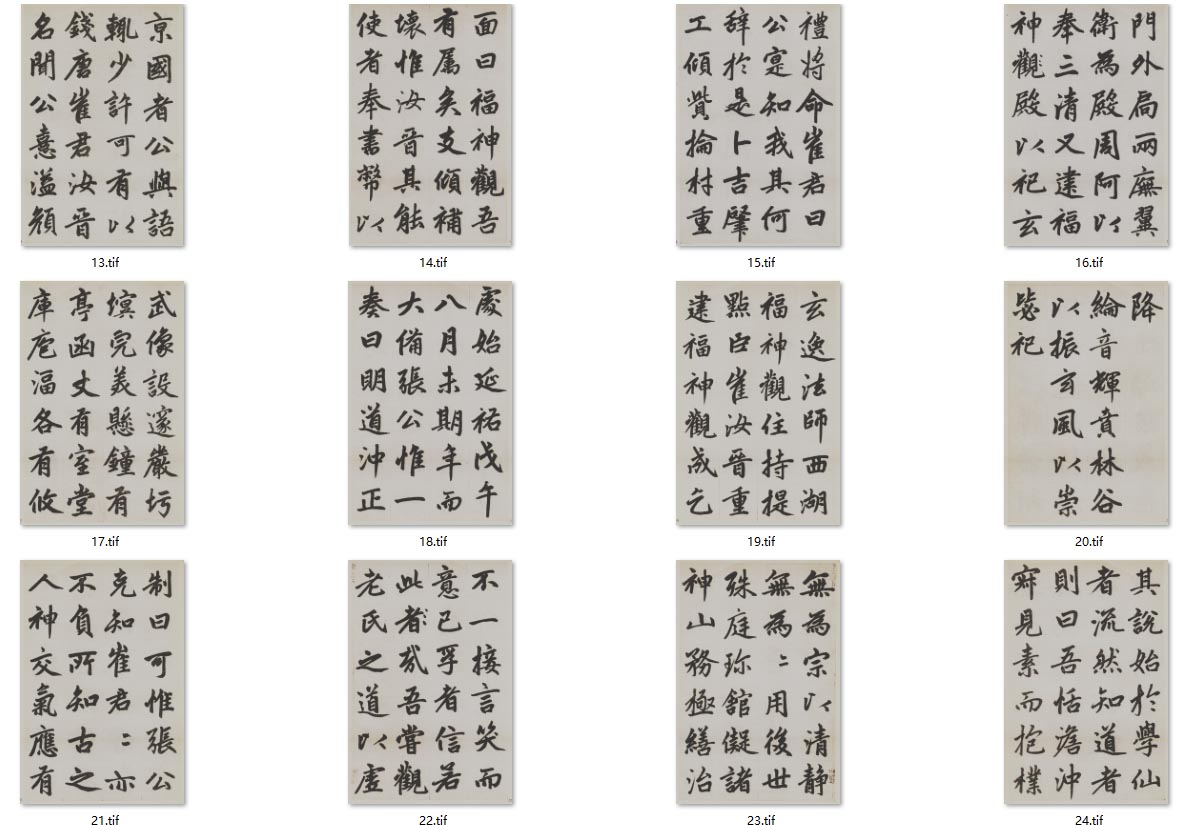 京國者公與語
輒少許可有以
錢唐崔君汝晉
名聞公憙溢顔
13.tif
面曰福神觀吾
有属矣支傾補
壊惟汝晉其能
使者奉書幣以
14.tif
禮將命崔君曰
公寔知我其何
辭於是卜吉肈
工傾貲掄材重
15.tif
門外扃兩廡翼
衛為殿周阿以
奉三清又建福
神觀殿以祀玄
16.tif
武像設邃嚴圬
墁完美懸鐘有
亭函丈有室堂
庫庖湢各有攸
17.tif
處始延祐戊午
八月未期年而
大備張公惟一
奏曰明道沖正
18.tif
玄逸法師西湖
福神觀住持提
點臣崔汝晉重
建福神觀成乞
19.tif
降
綸音輝賁林谷
以振玄風以崇
毖祀
20.tif
制曰可惟張公
克知崔君〻亦
不負所知古之
人神交氣應有
21.tif
不一接言笑而
意已孚者信若
此者哉吾嘗觀
老氏之道以虛
22.tif
無為宗以清静
無為〻用後世
殊庭珎舘儗諸
神山務極繕治
23.tif
其說始於學仙
者流然知道者
則曰吾恬澹沖
寂見素而抱樸
24.tif